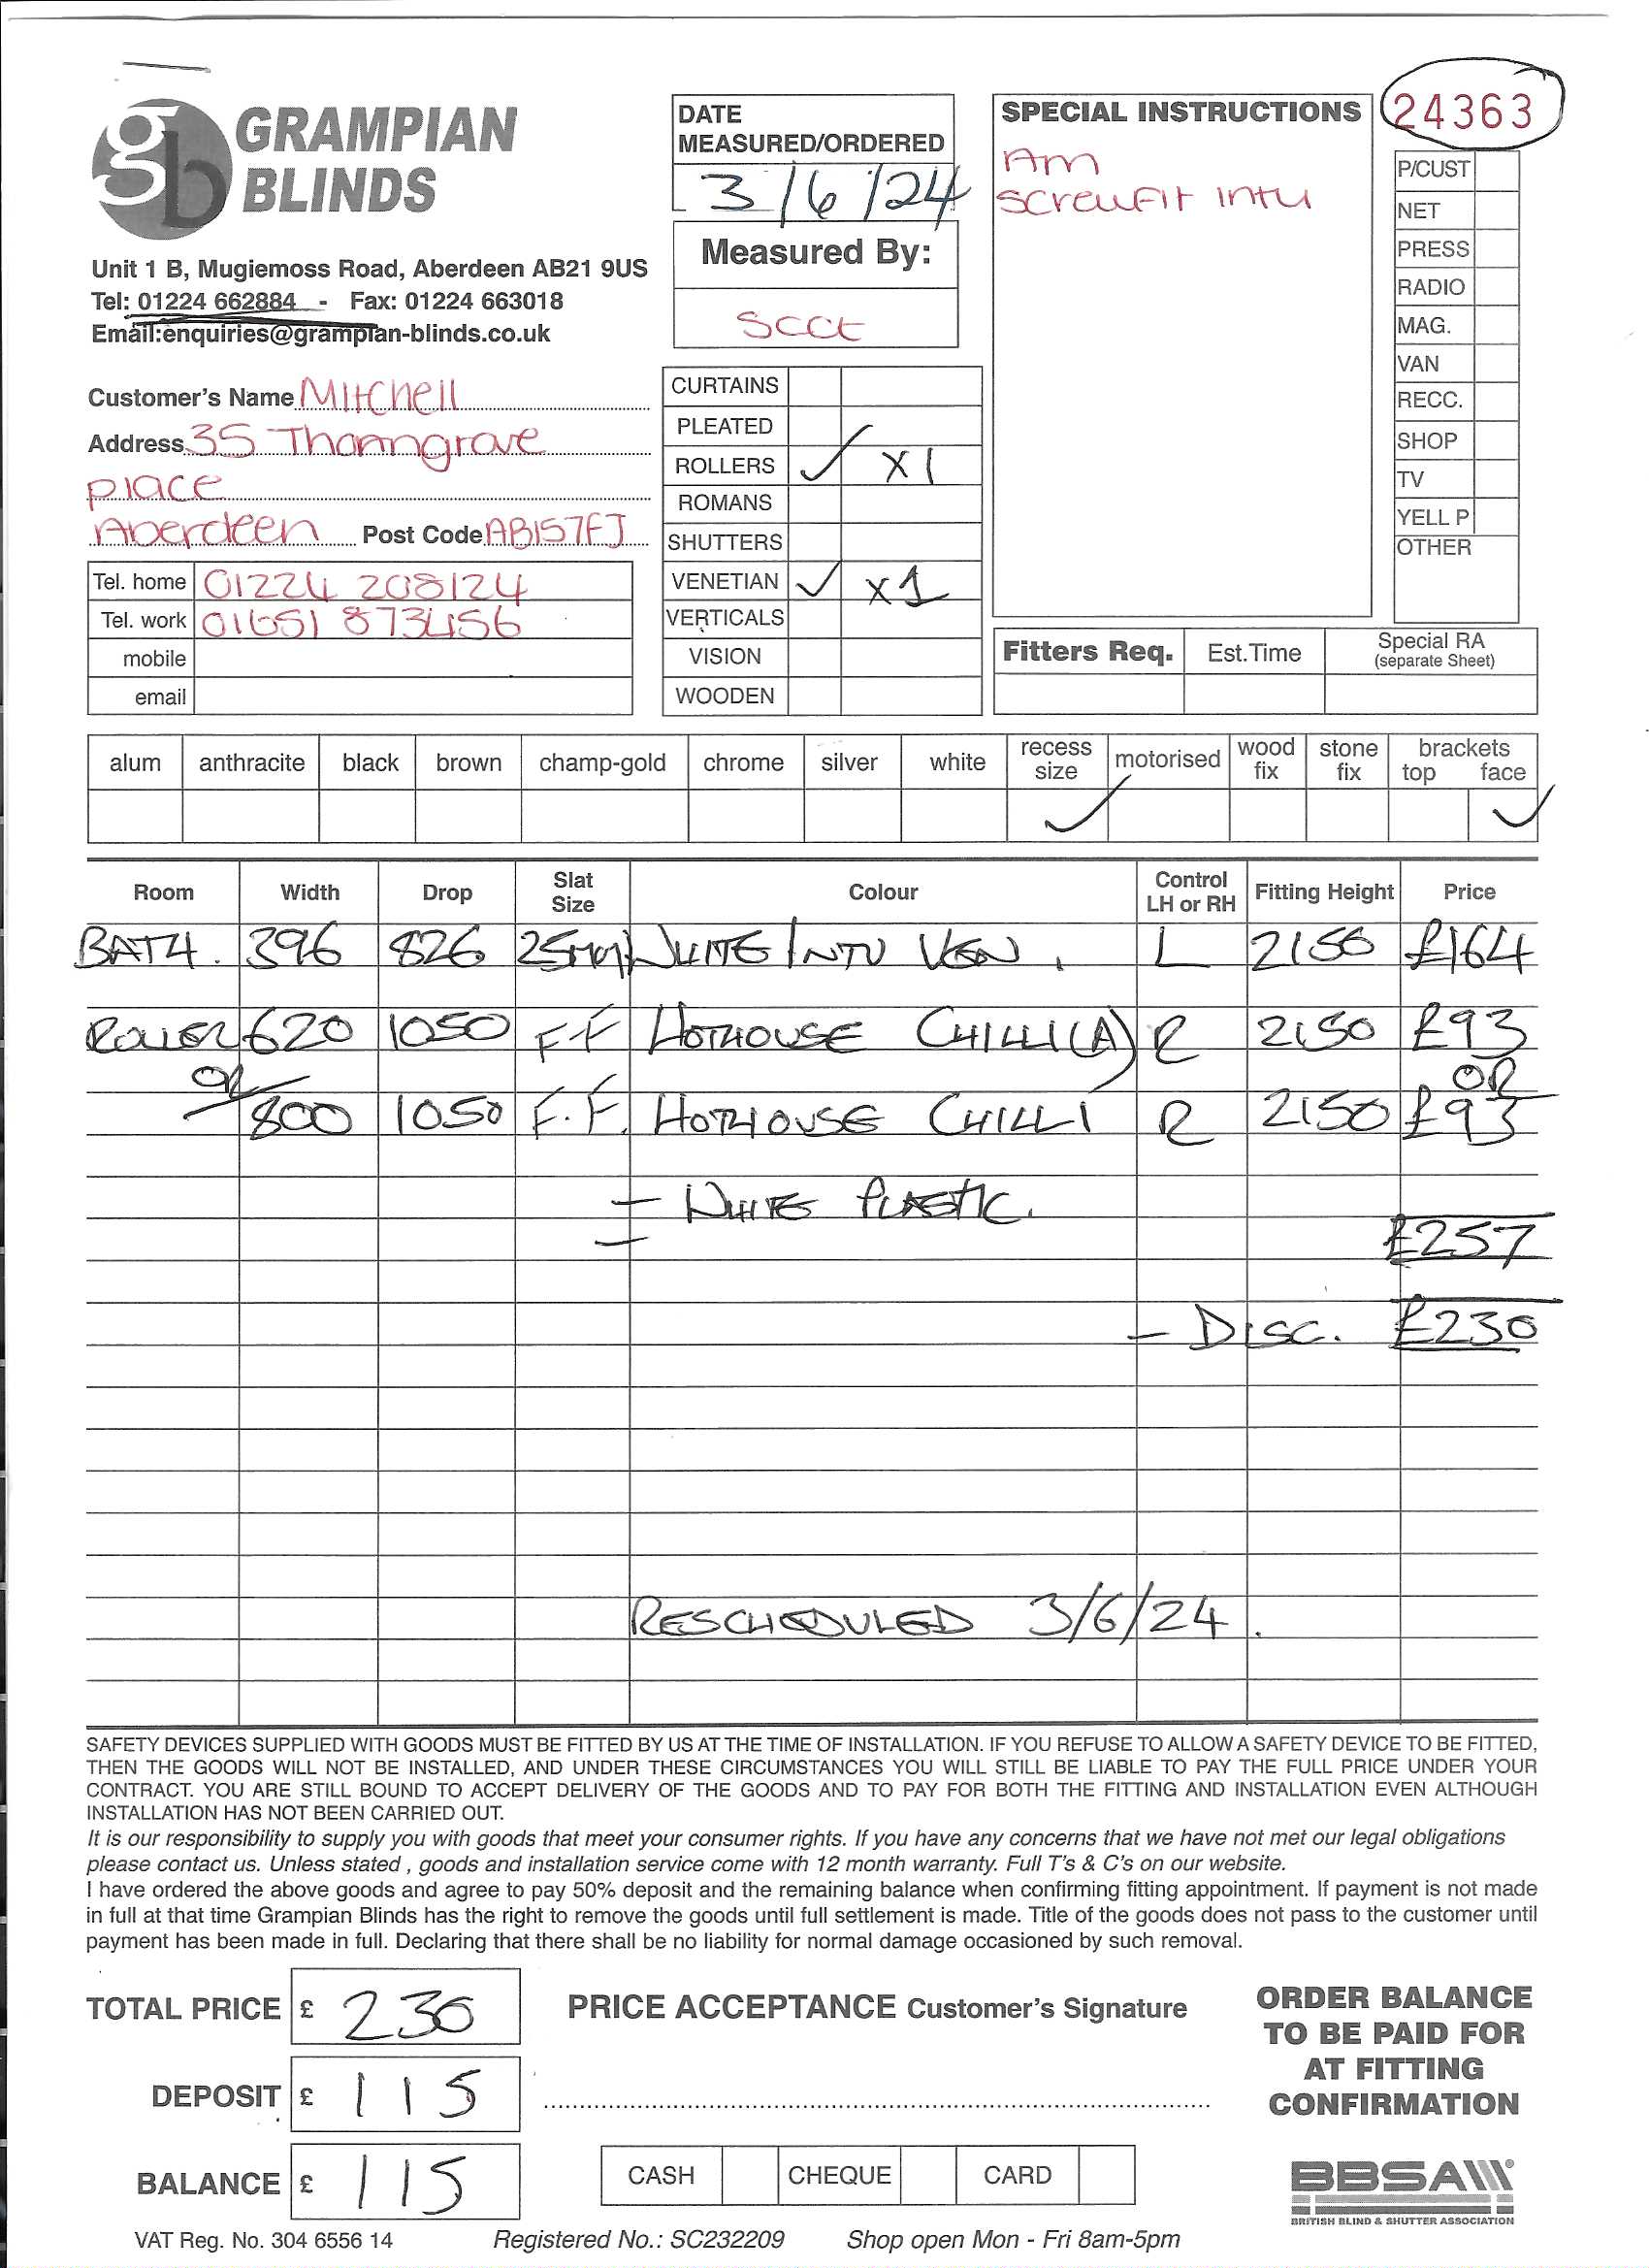 GRAMPIAN
BLINDS
Unit 1 B, Mugiemoss Road, Aberdeen AB21 9US
Tel: 01224 662884 - Fax: 01224 663018
Email:enquiries@grampian-blinds.co.uk
Customer's Name Mitchell
Address 35 Thorngrove
place
Aberdeen Post Code AB157FJ
Tel. home 01224 208124
Tel. work 01651 873456
mobile
email
DATE
MEASURED/ORDERED
3/6/24
Measured By:
Scct
CURTAINS
PLEATED
ROLLERS ✓ x1
ROMANS
SHUTTERS
VENETIAN ✓ x1
VERTICALS
VISION
WOODEN
SPECIAL INSTRUCTIONS
Am
screwfit intu
24363
P/CUST
NET
PRESS
RADIO
MAG.
VAN
RECC.
SHOP
TV
YELL P
OTHER
Fitters Req. Est.Time Special RA
(separate Sheet)
alum anthracite black brown champ-gold chrome silver white recess size motorised wood fix stone fix brackets top face
✓ ✓
Room Width Drop Slat Size Colour Control LH or RH Fitting Height Price
BATH. 396 826 25mm WHITE INTU VEN. L 2150 £164
ROLLER 620 1050 F F HOTHOUSE CHILLI (A) R 2150 £93
OR OR
800 1050 F.F. HOTHOUSE CHILLI R 2150 £93
- WHITE PLASTIC.
£257
- DISC. £230
RESCHEDULED 3/6/24.
SAFETY DEVICES SUPPLIED WITH GOODS MUST BE FITTED BY US AT THE TIME OF INSTALLATION. IF YOU REFUSE TO ALLOW A SAFETY DEVICE TO BE FITTED,
THEN THE GOODS WILL NOT BE INSTALLED, AND UNDER THESE CIRCUMSTANCES YOU WILL STILL BE LIABLE TO PAY THE FULL PRICE UNDER YOUR
CONTRACT. YOU ARE STILL BOUND TO ACCEPT DELIVERY OF THE GOODS AND TO PAY FOR BOTH THE FITTING AND INSTALLATION EVEN ALTHOUGH
INSTALLATION HAS NOT BEEN CARRIED OUT.
It is our responsibility to supply you with goods that meet your consumer rights. If you have any concerns that we have not met our legal obligations
please contact us. Unless stated , goods and installation service come with 12 month warranty. Full T's & C's on our website.
I have ordered the above goods and agree to pay 50% deposit and the remaining balance when confirming fitting appointment. If payment is not made
in full at that time Grampian Blinds has the right to remove the goods until full settlement is made. Title of the goods does not pass to the customer until
payment has been made in full. Declaring that there shall be no liability for normal damage occasioned by such removal.
TOTAL PRICE £ 230
DEPOSIT £ 115
BALANCE £ 115
PRICE ACCEPTANCE Customer's Signature
CASH CHEQUE CARD
ORDER BALANCE
TO BE PAID FOR
AT FITTING
CONFIRMATION
BBSA
BRITISH BLIND & SHUTTER ASSOCIATION
VAT Reg. No. 304 6556 14 Registered No.: SC232209 Shop open Mon - Fri 8am-5pm